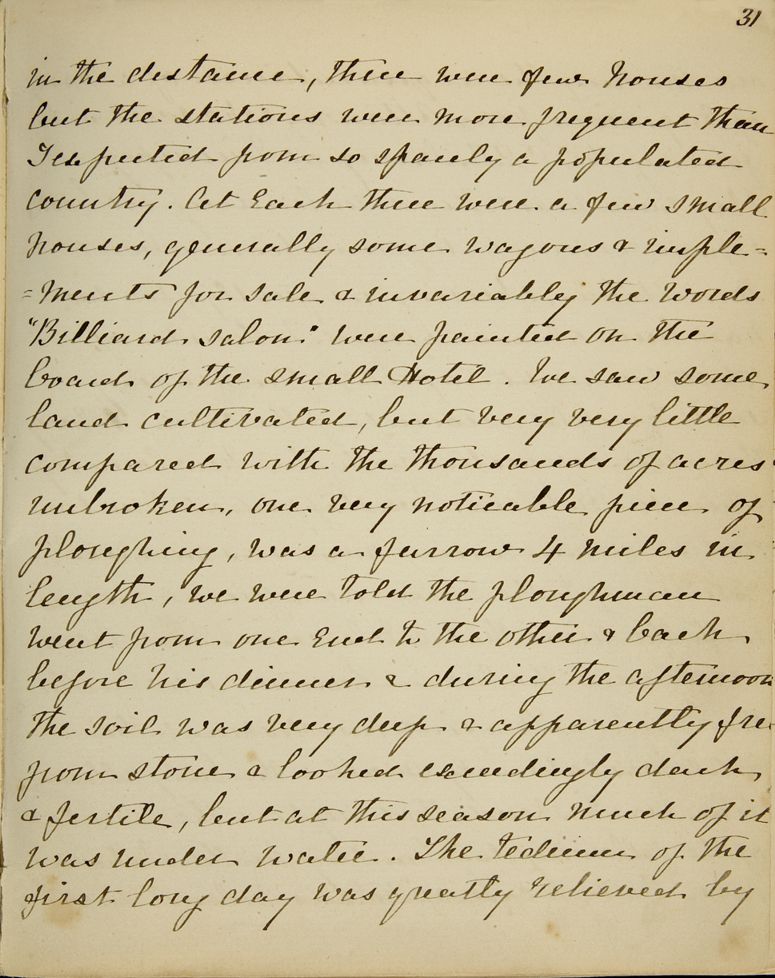 31
in the distance, there were few houses
but the stations were more frequent than
I expected from so sparely a populated
country. At Each there were a few small
houses, generally some wagons & imple=
=ments for sale & invariably the words
"Billiard salon" were painted on the
board of the small Hotel. We saw some
land cultivated, but very very little
compared with the thousands of acres
unbroken, one very noticable piece of
ploughing, was a furrow 4 miles in
length, we were told the ploughman
went from one End to the other & back
before his dinner & during the afternoon
the soil was very deep & apparently free
from stone & looked exceedingly dark
& fertile, but at this season much of it
was under water. The tedium of the
first long day was greatly relieved by